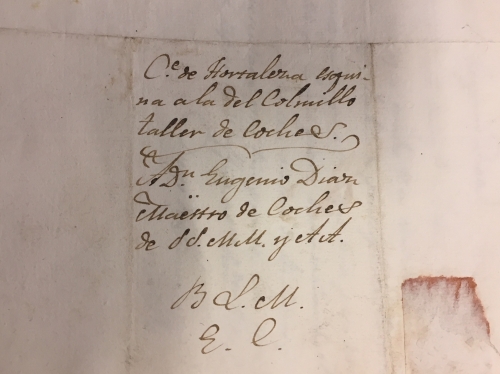 C.e de Hortaleza esqui-
na a la del Colmillo
taller de Coches.
A Dn. Eugenio Diaz
Maëstro de Coches
de SS. MM. y AA.
B L. M.
E. C.